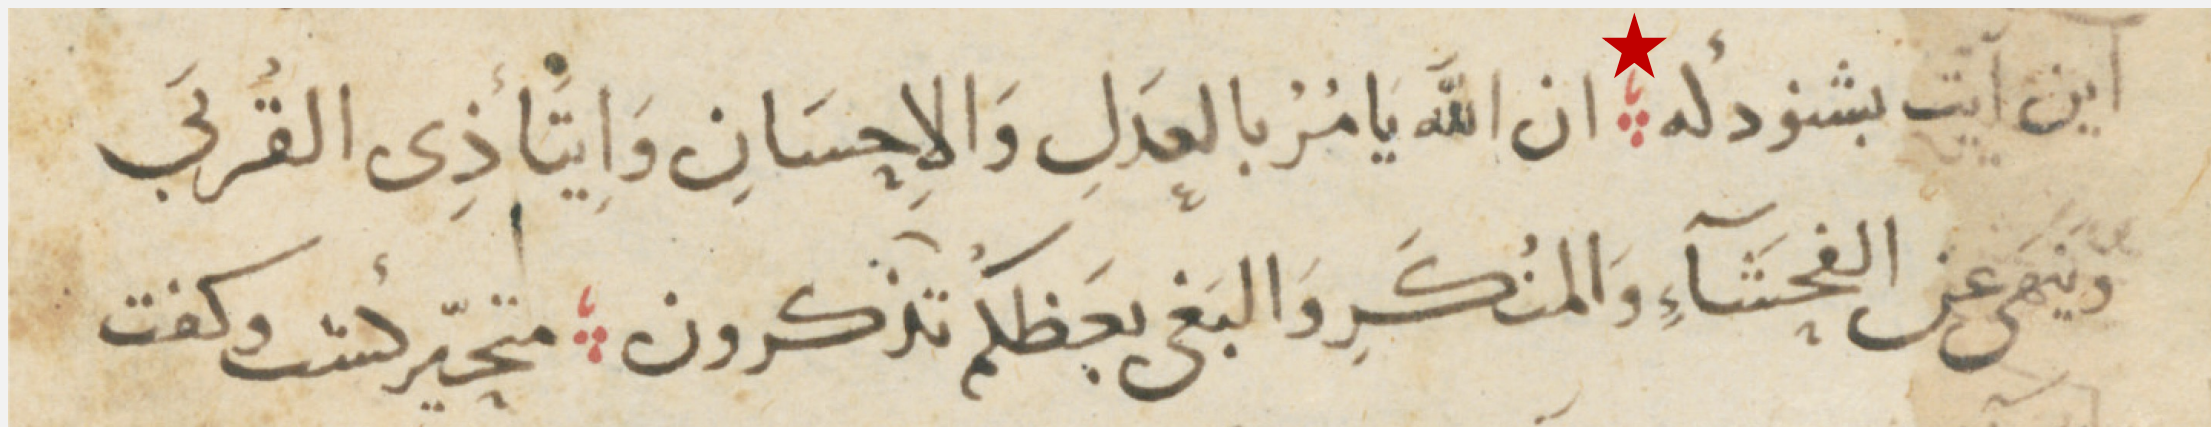 این آیت بشنود له ان اللّٰه یَامُرُ بالعَدَلِ وَالاِحسَانِ وَاِیتَآءِ ذِی القُربَی
وَینَهَی عن الفحشَآءِ وَالمنُکَرِ وَالبَغی یعَظکُم تذکرون متحیّر گشت و کفت